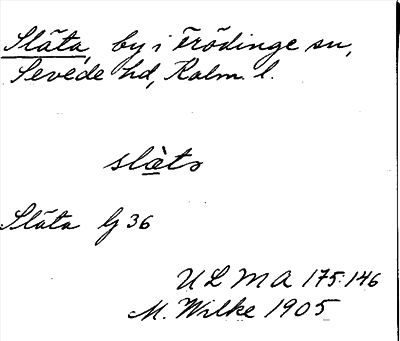 Släta, by i Frödinge sn,
Sevede hd, Kalm. l.
slæ̀tɔ
Släta G 36
ULMA 175:146
M. Wilke 1905